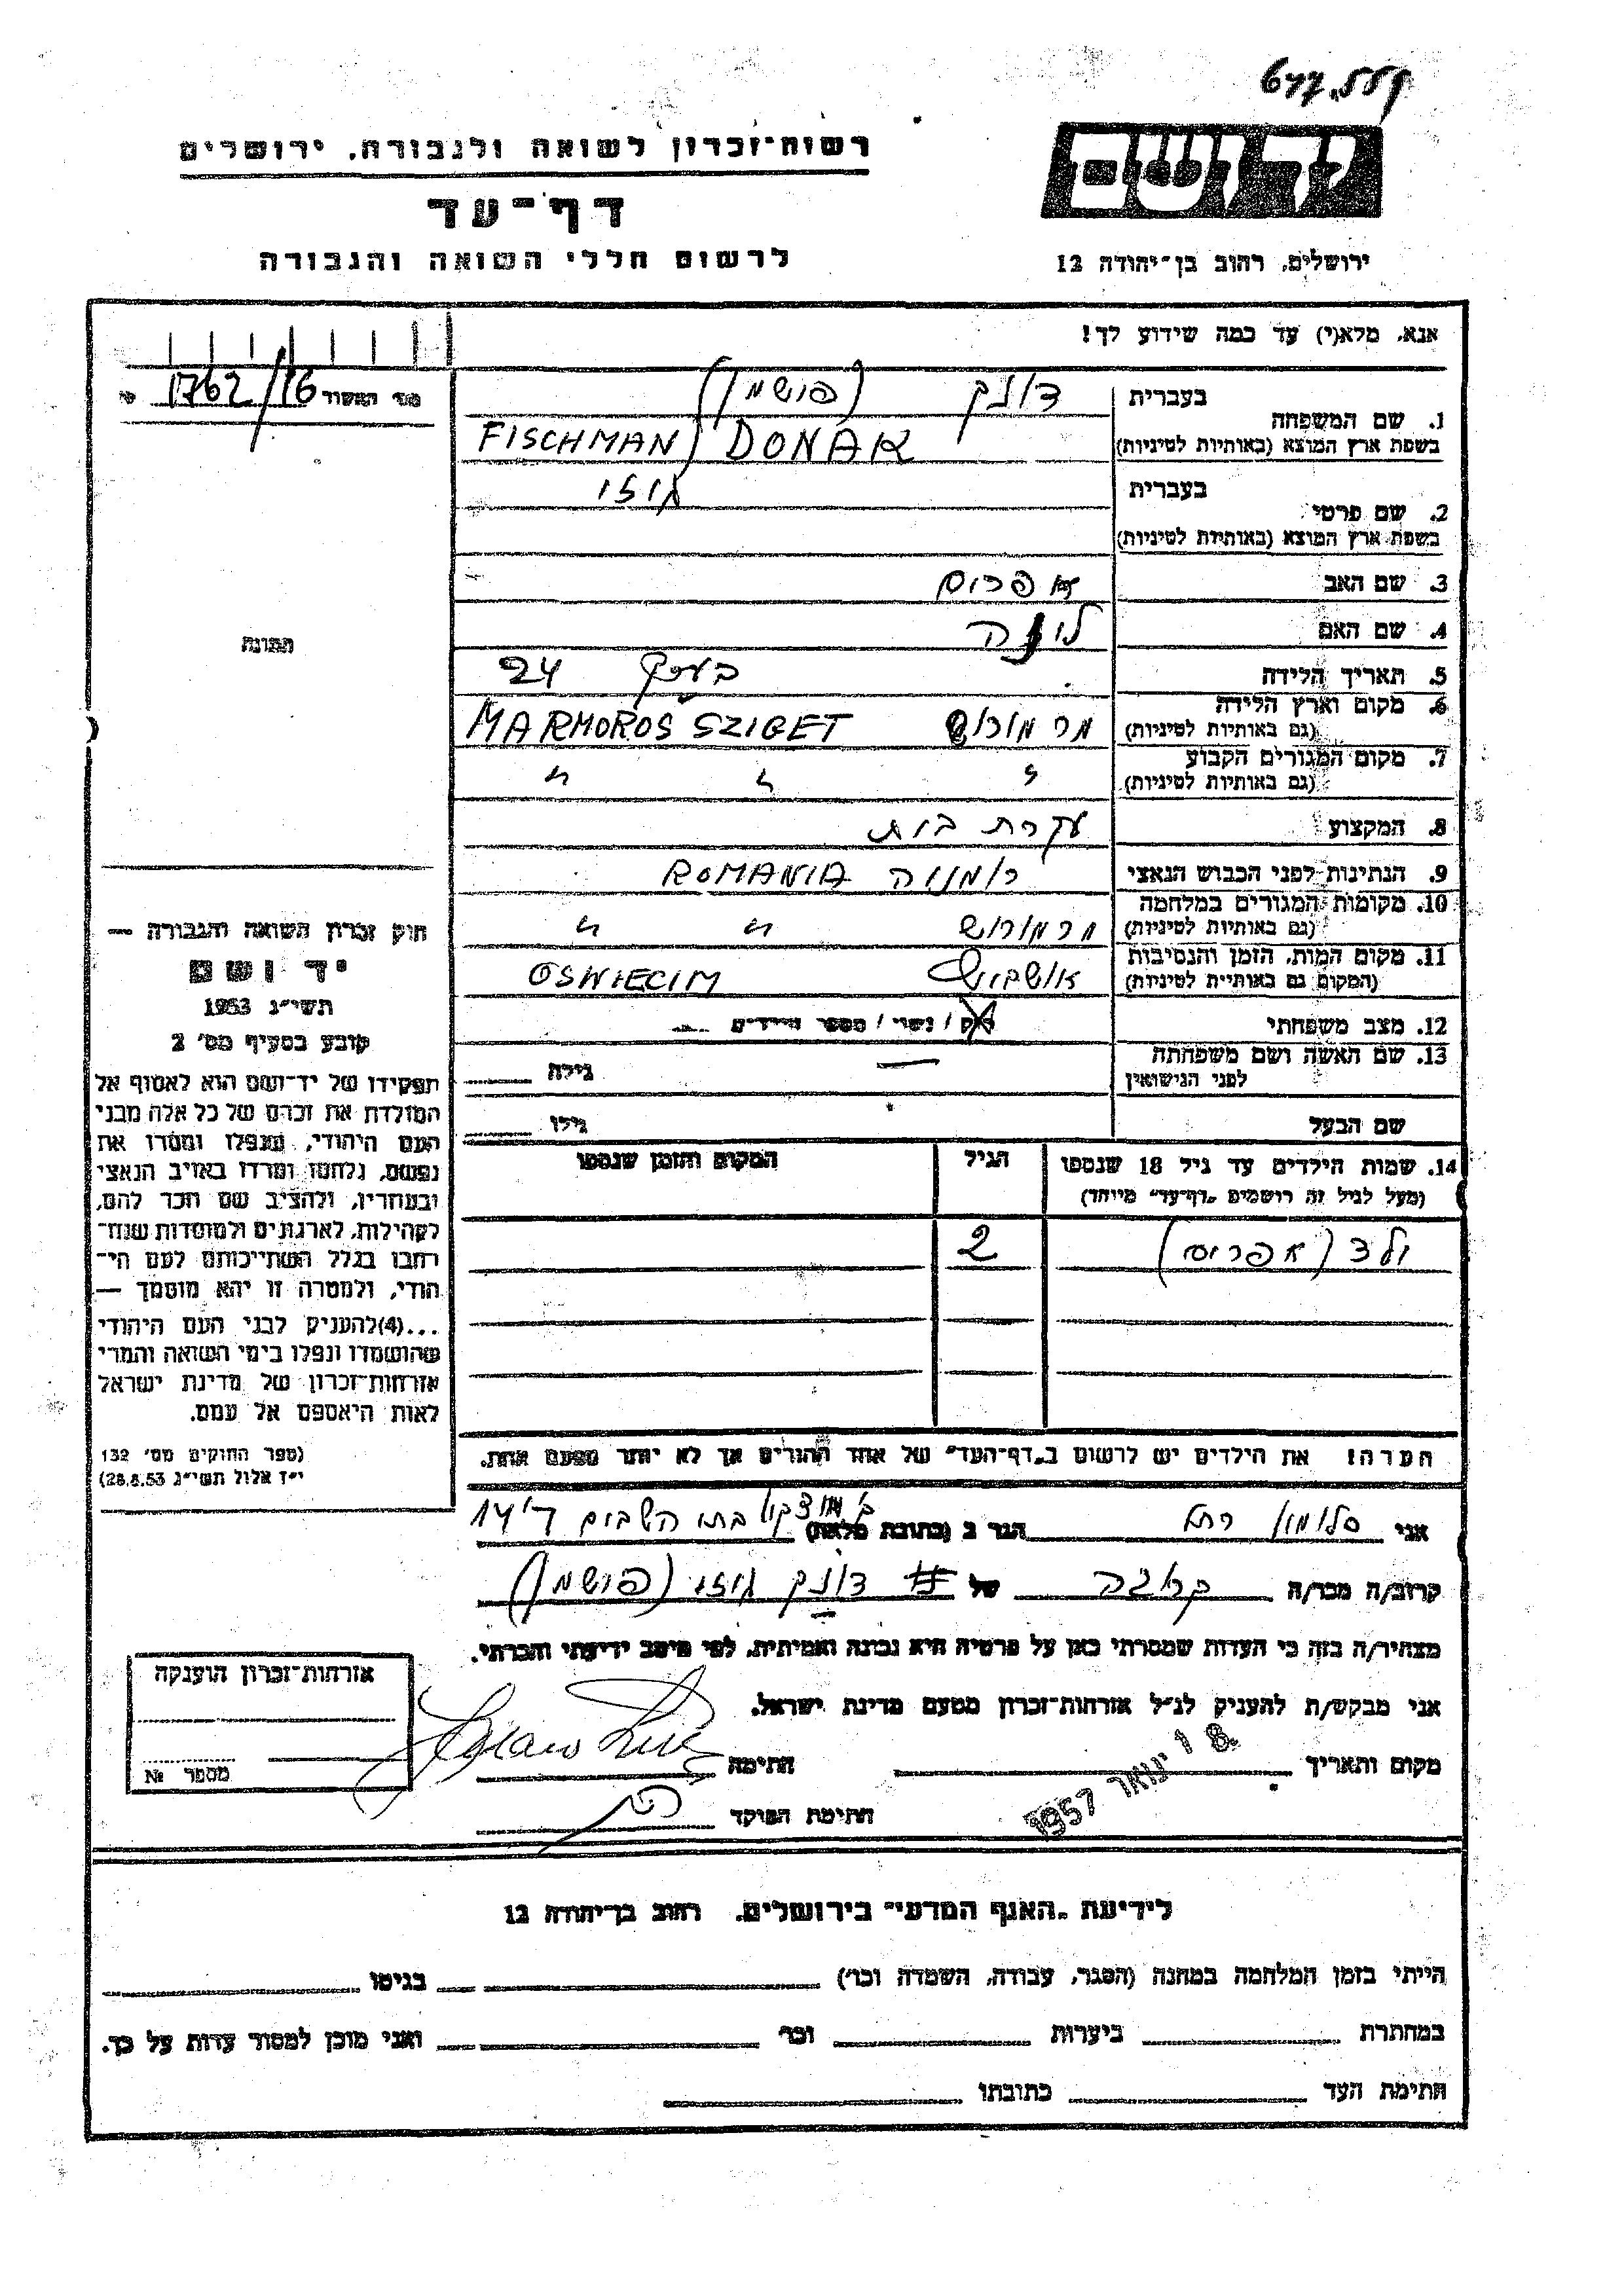 רשות־זכרון לשואה ולגבורה, ירושלים
דף־עד
לרשום חללי השואה והגבורה
יד ושם
ירושלים, רחוב בן־יהודה 12
אנא, מלא(י) עד כמה שידוע לך!
1762/16
1. שם המשפחה
בעברית דונק (פישמן)
בשפת ארץ המוצא (באותיות לטיניות) FISCHMAN) DONAK
2. שם פרטי
בעברית גיזי
בשפת ארץ המוצא (באותיות לטיניות)
3. שם האב אפרים
4. שם האם
5. תאריך הלידה 24
6. מקום וארץ הלידה (גם באותיות לטיניות) מרמורוש MARMOROS SZIGET
7. מקום המגורים הקבוע (גם באותיות לטיניות) " " "
8. המקצוע עקרת בית
9. הנתינות לפני הכבוש הנאצי רומניה ROMANIA
10. מקומות המגורים במלחמה (גם באותיות לטיניות) מרמורוש " "
11. מקום המות, הזמן והנסיבות (המקום גם באותיות לטיניות) אושביץ OSWIECIM
12. מצב משפחתי רוק / נשוי / מספר הילדים
13. שם האשה ושם משפחתה לפני הנישואין — גילה
שם הבעל גילו
14. שמות הילדים עד גיל 18 שנספו (מעל לגיל זה רושמים "דף־עד" מיוחד) הגיל המקום והזמן שנספו
ילד (אפרים) 2
הערה! את הילדים יש לרשום ב"דף־העד" של אחד ההורים אך לא יותר מפעם אחת.
תמונה
חוק זכרון השואה והגבורה —
יד ושם
תשי"ג 1953
קובע בסעיף מס' 2
תפקידו של יד־ושם הוא לאסוף אל
המולדת את זכרם של כל אלה מבני
העם היהודי, שנפלו ומסרו את
נפשם, נלחמו ומרדו באויב הנאצי
ובעוזריו, ולהציב שם וזכר להם,
לקהילות, לארגונים ולמוסדות שנח־
רבו בגלל השתייכותם לעם הי־
הודי, ולמטרה זו יהא מוסמך —
...(4)להעניק לבני העם היהודי
שהושמדו ונפלו בימי השואה והמרי
אזרחות־זכרון של מדינת ישראל
לאות היאספם אל עמם.
(ספר החוקים מס' 132
י"ז אלול תשי"ג 28.8.53)
אני סלומון רחל הגר ב (כתובת מלאה) בתי השבים ד' 14
קרוב/ה מכר/ה קרובה של דונק גיזי (פישמן)
מצהיר/ה בזה כי העדות שמסרתי כאן על פרטיה היא נכונה ואמיתית, לפי מיטב ידיעתי והכרתי.
אני מבקש/ת להעניק לנ"ל אזרחות־זכרון מטעם מדינת ישראל.
מקום ותאריך 18 ינואר 1957 חתימה
חתימת הפוקד
אזרחות־זכרון הוענקה
מספר №
לידיעת "האגף המדעי" בירושלים, רחוב בן־יהודה 12
הייתי בזמן המלחמה במחנה (הסגר, עבודה, השמדה וכו') בגיטו
במחתרת ביערות וכו' ואני מוכן למסור עדות על כך.
חתימת העד כתובתו